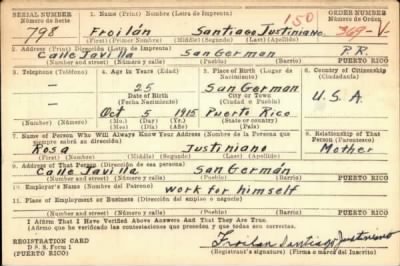 SERIAL NUMBER 1. Name (Print) Nombre (Letra de Imprenta) ORDER NUMBER
Número de Serie Número de Orden
150
798 Froilán Santiago Justiniano 369-V
(First) (Primer Nombre) (Middle) (Segundo) (Last) (Apellido)
2. Address (Print) Dirección (Letra de Imprenta)
Calle Javilla San German P.R.
(Number and street) (Número y calle) (Town) (Pueblo) PUERTO RICO
3. Telephone (Teléfono) 4. Age in Years (Edad) 5. Place of Birth (Lugar de Nacimiento) 6. Country of Citizenship (Ciudadanía)
— 25 San German
Date of Birth (Fecha Nacimiento) City or Town (Ciudad o Pueblo) U.S.A.
— Oct 5 1915 Puerto Rico
(Mo.) (Day) (Yr.) (State or country)
(Mes) (Día) (Año) (País)
7. Name of Person Who Will Always Know Your Address (Nombre de la Persona que siempre sabrá su dirección) 8. Relationship of That Person (Parentesco)
Rosa Justiniano Mother
(First) (Nombre) (Middle) (Segundo) (Last) (Apellido)
9. Address of That Person (Dirección de esa persona)
Calle Javilla San Germán
(Number and street) (Número y calle) (Town) (Pueblo) PUERTO RICO
10. Employer's Name (Nombre del Patrono)
Work for himself
11. Place of Employment or Business (Dirección del empleo o negocio)
(Number and street) (Número y calle) (Town) (Pueblo) PUERTO RICO
I Affirm That I Have Verified Above Answers And That They Are True.
(Afirmo que he verificado las contestaciones que preceden y que todas son correctas.)
REGISTRATION CARD
D. S. S. Form 1
(PUERTO RICO)
Froilan Santiago Justiniano
(Registrant's signature) (Firma o marca del Inscrito)